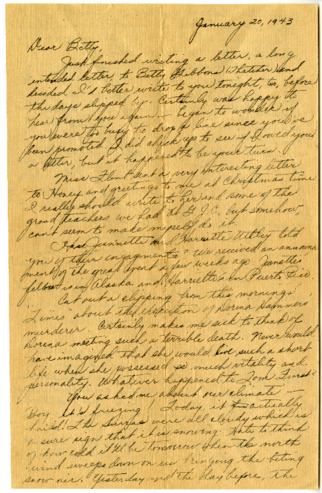 January 20, 1943
Dear Betty,
Just finished writing a letter, a long
intended letter, to Betty Gibbons Thatcher and
decided I'd better write to you tonight, too, before
the days slipped by. Certainly was happy to
hear from you again - began to wonder if
you were too busy to drop a line since you've
been promoted. I did check up to see if I owed you
a letter, but it happened to be your turn.
Miss Flint sent a very interesting letter
to Honey and greetings to me at Christmas time
I really should write to her and some of the
grand teachers we had at but somehow
can't seem to make myself do it.
Has Jeannette and Harriette Uthey told
you of their engagements? We received an announce
ment of the great event a few weeks ago. Janette's
fellow is in Alaska and Harriette's in Puerto Rico.
Cut out a clipping from this morning's
Times about the execution of Dorena Hammer's
murderer. Certainly makes me sick to think of
Dorena meeting such a terrible death. Never would
have imagined that she would live such a short
life when she possessed so much vitality and
personality. Whatever happened to
You asked me about our climate -
boy it's freezing. Today it actually
The Sierras were all cloudy which is
a sure sign that it is snowing. Hate to think
of how cold it'll be tomorrow when the north
wind sweeps down on us bringing the biting
snow air. Yesterday and the day before, the